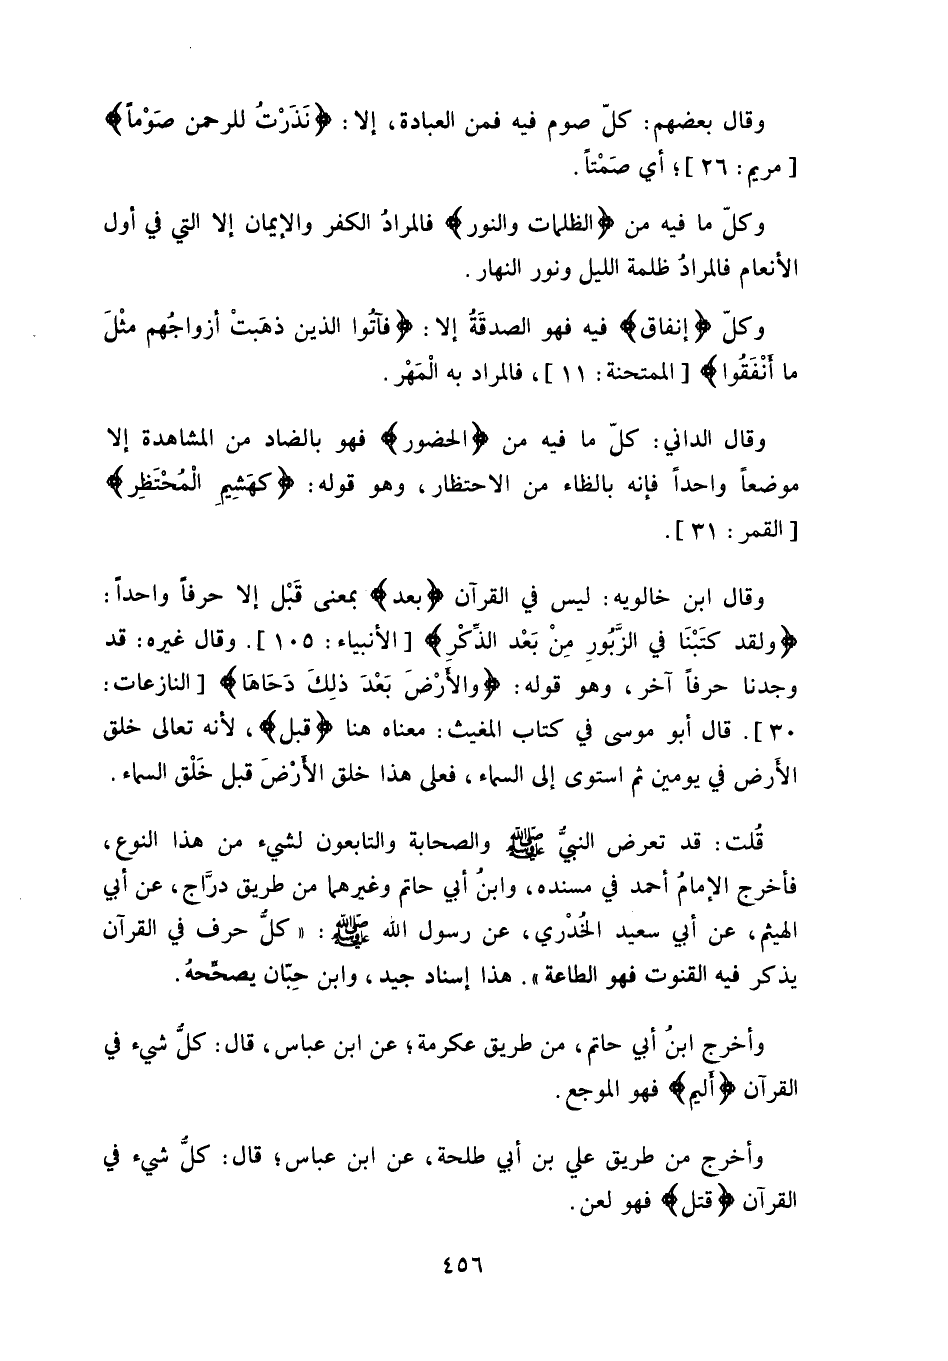 وقال بعضهم: كلّ صوم فيه فمن العبادة، إلا: ﴿نَذَرْتُ للرحمن صَوْماً﴾
[مريم: ٢٦]؛ أي صَمْتاً.
وكلّ ما فيه من ﴿الظلمات والنور﴾ فالمرادُ الكفر والإيمان إلا التي في أول
الأنعام فالمرادُ ظلمة الليل ونور النهار.
وكلّ ﴿إنفاق﴾ فيه فهو الصدقَةُ إلا: ﴿فآتُوا الذين ذهَبتْ أزواجُهم مثْلَ
ما أَنْفَقُوا﴾ [الممتحنة: ١١]، فالمراد به الْمَهْر.
وقال الداني: كلّ ما فيه من ﴿الحضور﴾ فهو بالضاد من المشاهدة إلا
موضعاً واحداً فإنه بالظاء من الاحتظار، وهو قوله: ﴿كهَشِيمِ الْمُحْتَظِر﴾
[القمر: ٣١].
وقال ابن خالويه: ليس في القرآن ﴿بعد﴾ بمعنى قَبْل إلا حرفاً واحداً:
﴿ولقد كتَبْنَا في الزَّبُورِ مِنْ بَعْد الذِّكْرِ﴾ [الأنبياء: ١٠٥]. وقال غيره: قد
وجدنا حرفاً آخر، وهو قوله: ﴿والأرْضَ بَعْدَ ذلِكَ دَحَاهَا﴾ [النازعات:
٣٠]. قال أبو موسى في كتاب المغيث: معناه هنا ﴿قبل﴾، لأنه تعالى خلق
الأَرض في يومين ثم استوى إلى السماء، فعلى هذا خلق الأَرْضَ قبل خَلْق السماء.
قُلت: قد تعرض النبيُّ ﷺ والصحابة والتابعون لشيء من هذا النوع،
فأخرج الإمامُ أحمد في مسنده، وابنُ أبي حاتم وغيرهما من طريق درَّاج، عن أبي
الهيثم، عن أبي سعيد الخُدْري، عن رسول الله ﷺ: «كلُّ حرف في القرآن
يذكر فيه القنوت فهو الطاعة». هذا إسناد جيد، وابن حِبّان يصحّحهُ.
وأخرج ابنُ أبي حاتم، من طريق عكرمة؛ عن ابن عباس، قال: كلُّ شيء في
القرآن ﴿أليم﴾ فهو الموجع.
وأخرج من طريق علي بن أبي طلحة، عن ابن عباس؛ قال: كلُّ شيء في
القرآن ﴿قتل﴾ فهو لعن.
٤٥٦